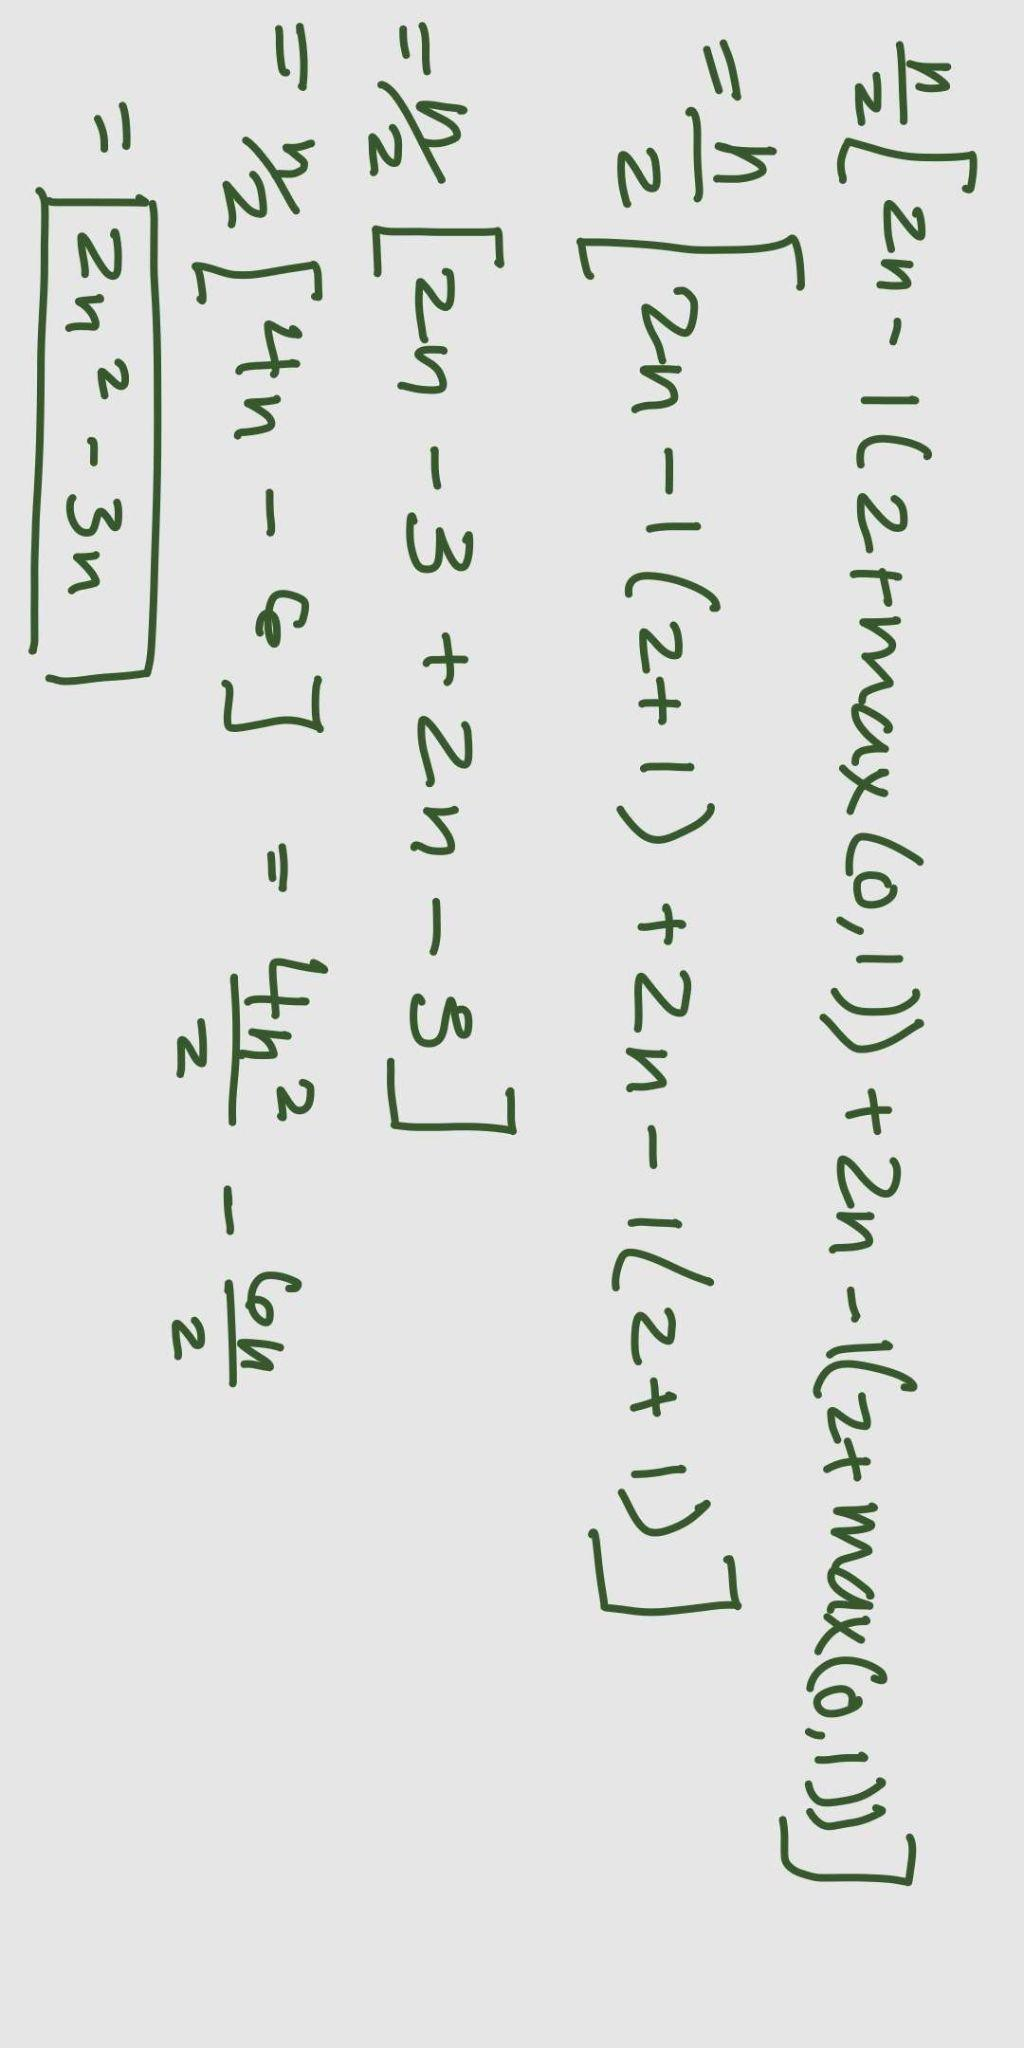 n/2 [2n - 1(2+max(0,1)) + 2n - 1(2+max(0,1))]
= n/2 [2n - 1(2+1) + 2n - 1(2+1)]
= n/2 [2n - 3 + 2n - 3]
= n/2 [4n - 6] = 4n²/2 - 6n/2
= 2n² - 3n